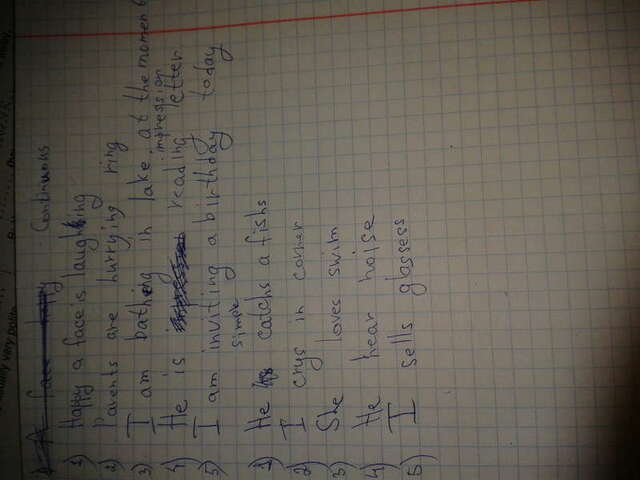 Continuous
1) Happy a face is laughing
2) Parents are hurrying ring
3) I am bathing in lake at the moment
impression
4) He is reading letter
5) I am inviting a birthday today
simple
1) He catchs a fishs
2) I crys in corner
3) She loves swim
4) He hear noise
5) I sells glassess